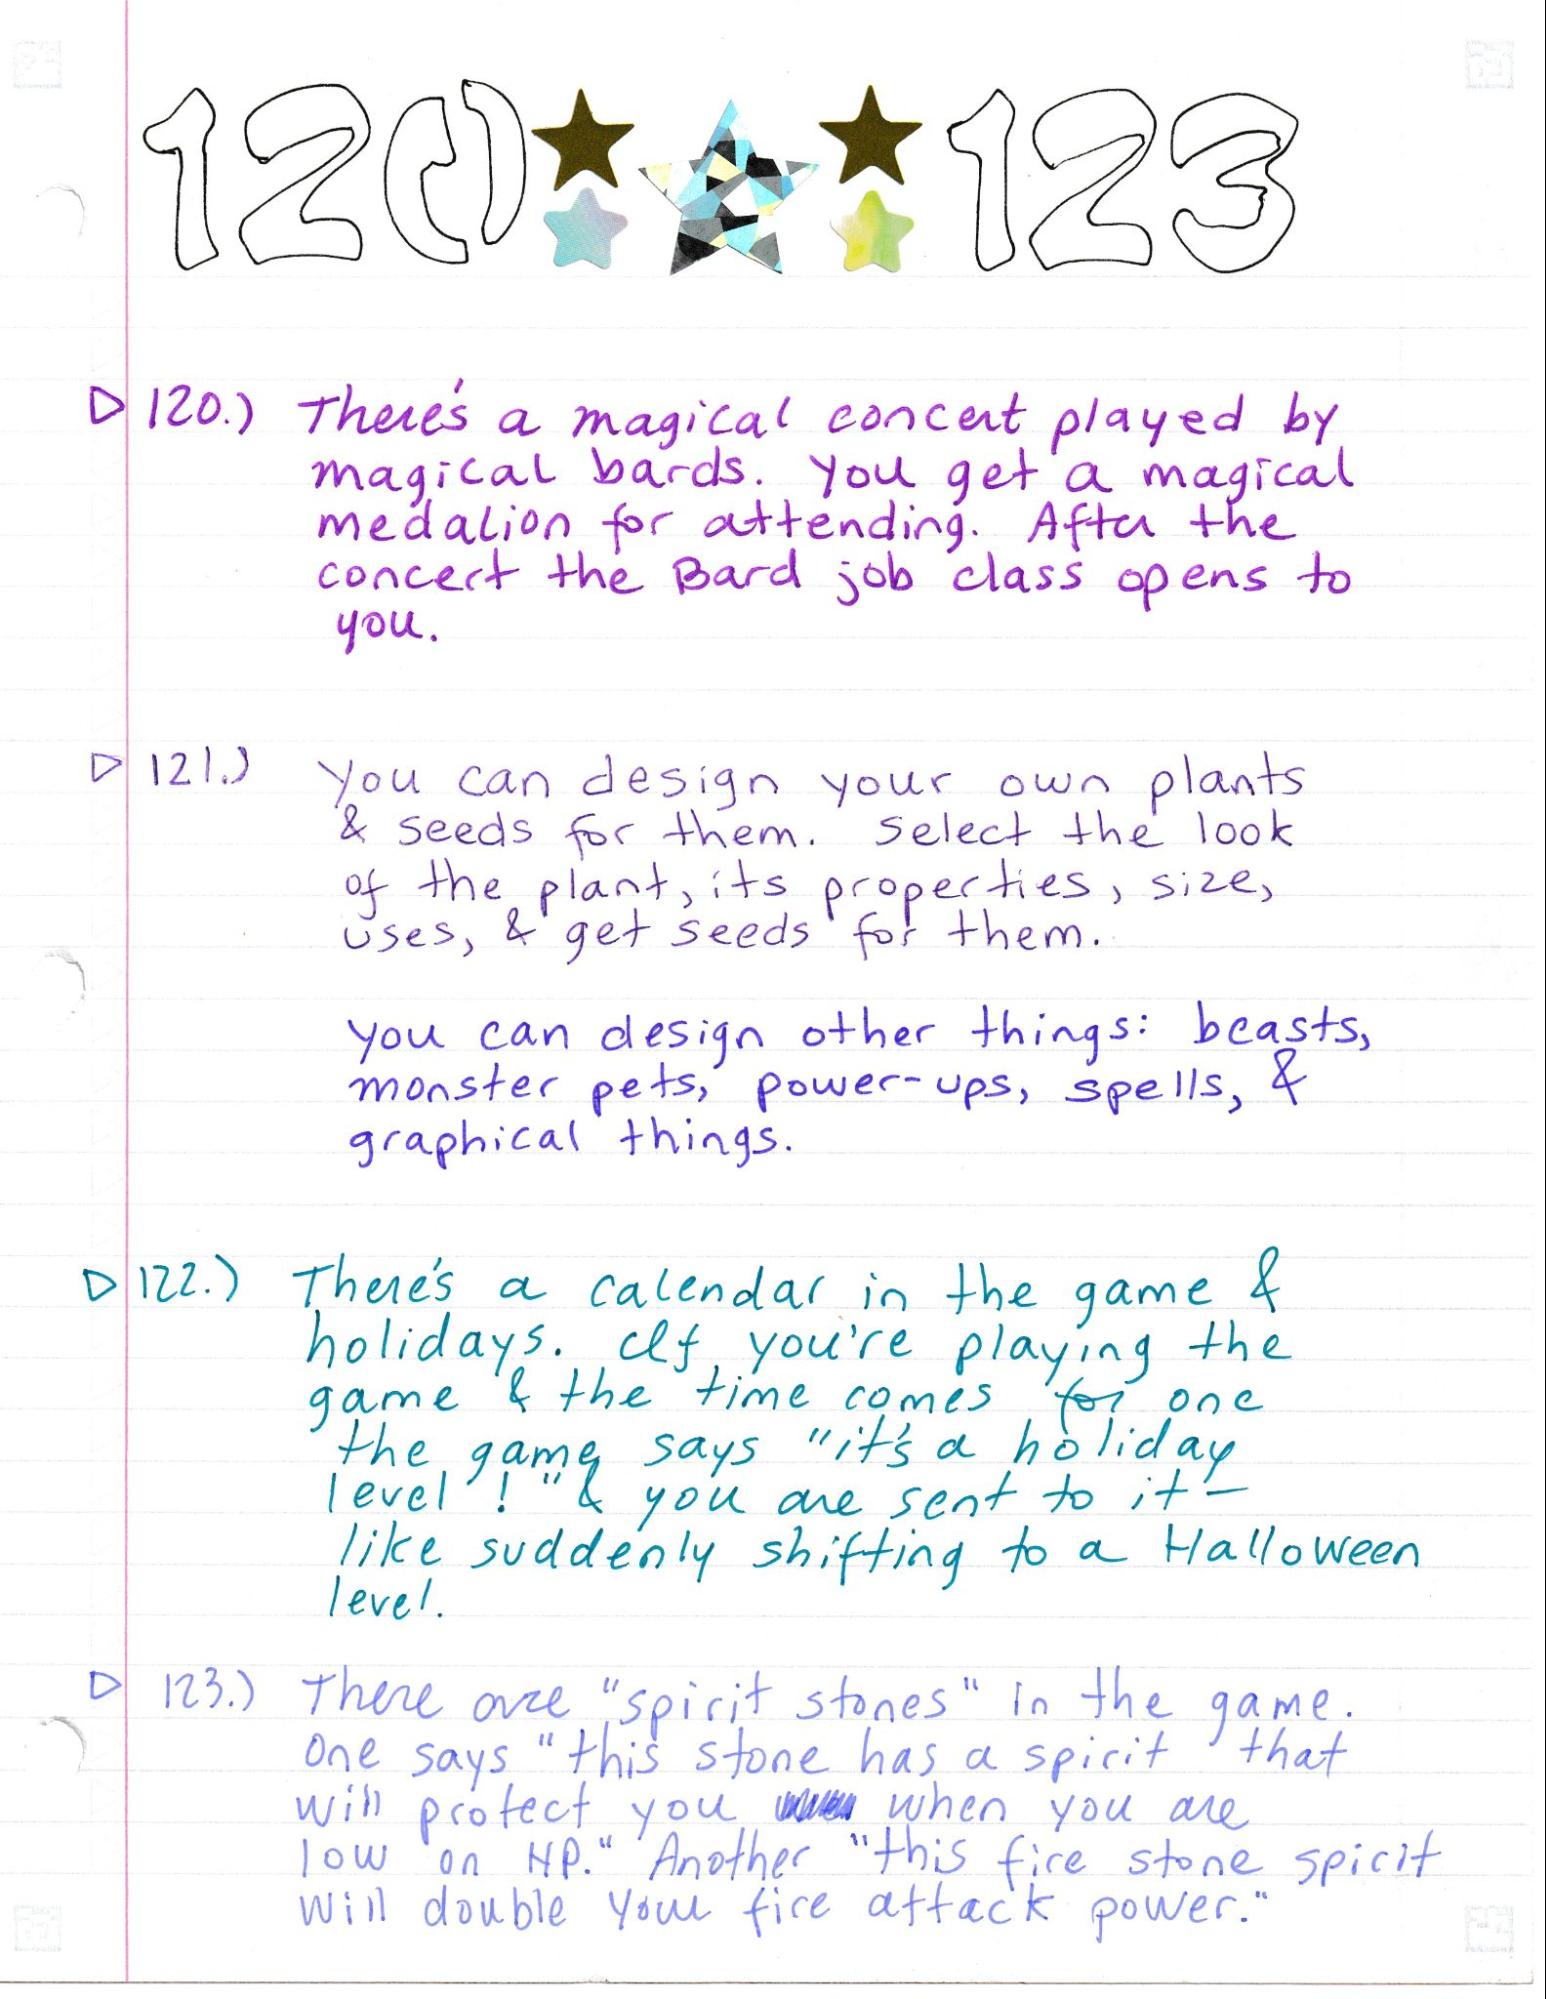 120 123
▷ 120.) There's a magical concert played by
magical bards. You get a magical
medalion for attending. After the
concert the Bard job class opens to
you.
▷ 121.) You can design your own plants
& seeds for them. Select the look
of the plant, its properties, size,
uses, & get seeds for them.
You can design other things: beasts,
monster pets, power-ups, spells, &
graphical things.
▷ 122.) There's a calendar in the game &
holidays. If you're playing the
game & the time comes for one
the game says "it's a holiday
level!" & you are sent to it –
like suddenly shifting to a Halloween
level.
▷ 123.) There are "spirit stones" in the game.
One says "this stone has a spirit that
will protect you when you are
low on HP." Another "this fire stone spirit
will double your fire attack power."